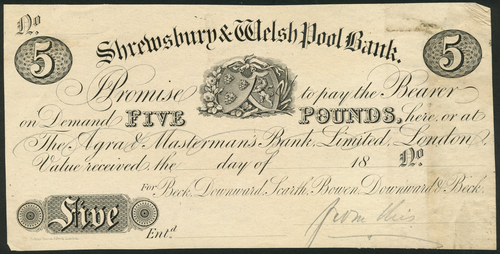 No.
5 Shrewsbury & Welsh Pool Bank. 5
I Promise to pay the Bearer
on Demand FIVE POUNDS, here, or at
The Agra & Masterman's Bank, Limited, London.
Value received the day of 18 No.
For Beck, Downward, Scarth, Bowen, Downward & Beck.
Five Entd.
from this